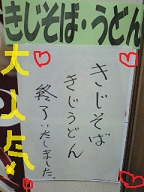 きじそば・うどん
大人気!
きじそば
きじうどん
終了いたしました。